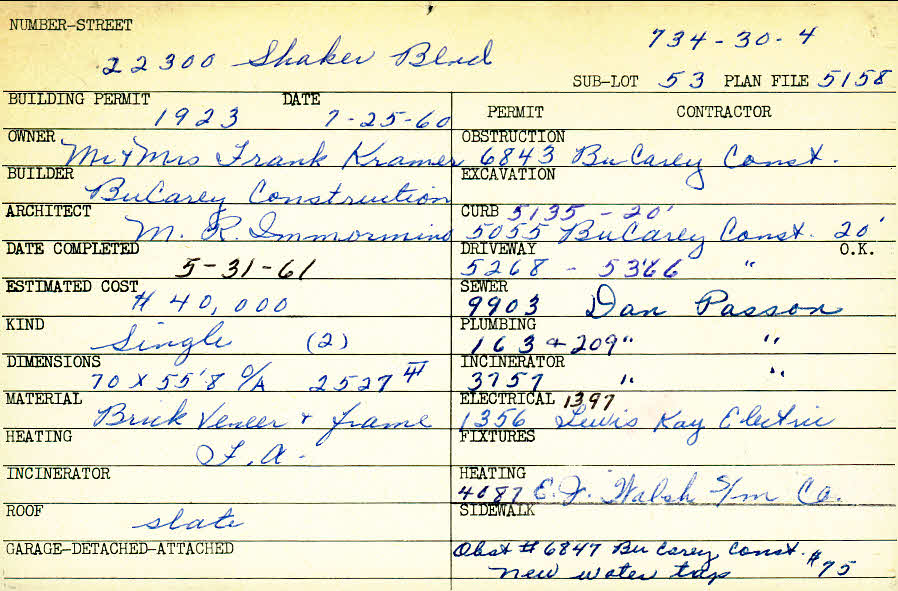 NUMBER-STREET
22300 Shaker Blvd
734-30-4
SUB-LOT 53 PLAN FILE 5158
BUILDING PERMIT DATE
1923 7-25-60
OWNER
Mr & Mrs Frank Kramer
BUILDER
BuCarey Construction
ARCHITECT
M. R. Immormino
DATE COMPLETED
5-31-61
ESTIMATED COST
# 40,000
KIND
Single (2)
DIMENSIONS
70 X 55'8 O/A 2527
MATERIAL
Brick Veneer & frame
HEATING
F.A.
INCINERATOR
ROOF
slate
GARAGE-DETACHED-ATTACHED
PERMIT CONTRACTOR
OBSTRUCTION
6843 BuCarey Const.
EXCAVATION
CURB 5135 - 20'
5055 BuCarey Const. 20'
DRIVEWAY O.K.
5268 - 5366 "
SEWER
9903 Dan Passon
PLUMBING
163 & 209 " "
INCINERATOR
3757 " "
ELECTRICAL 1397
1356 Lewis Kay Electric
FIXTURES
HEATING
4087 E. F. Walsh S/m Co.
SIDEWALK
Obst # 6847 Bu Carey Const.
new water tap #75